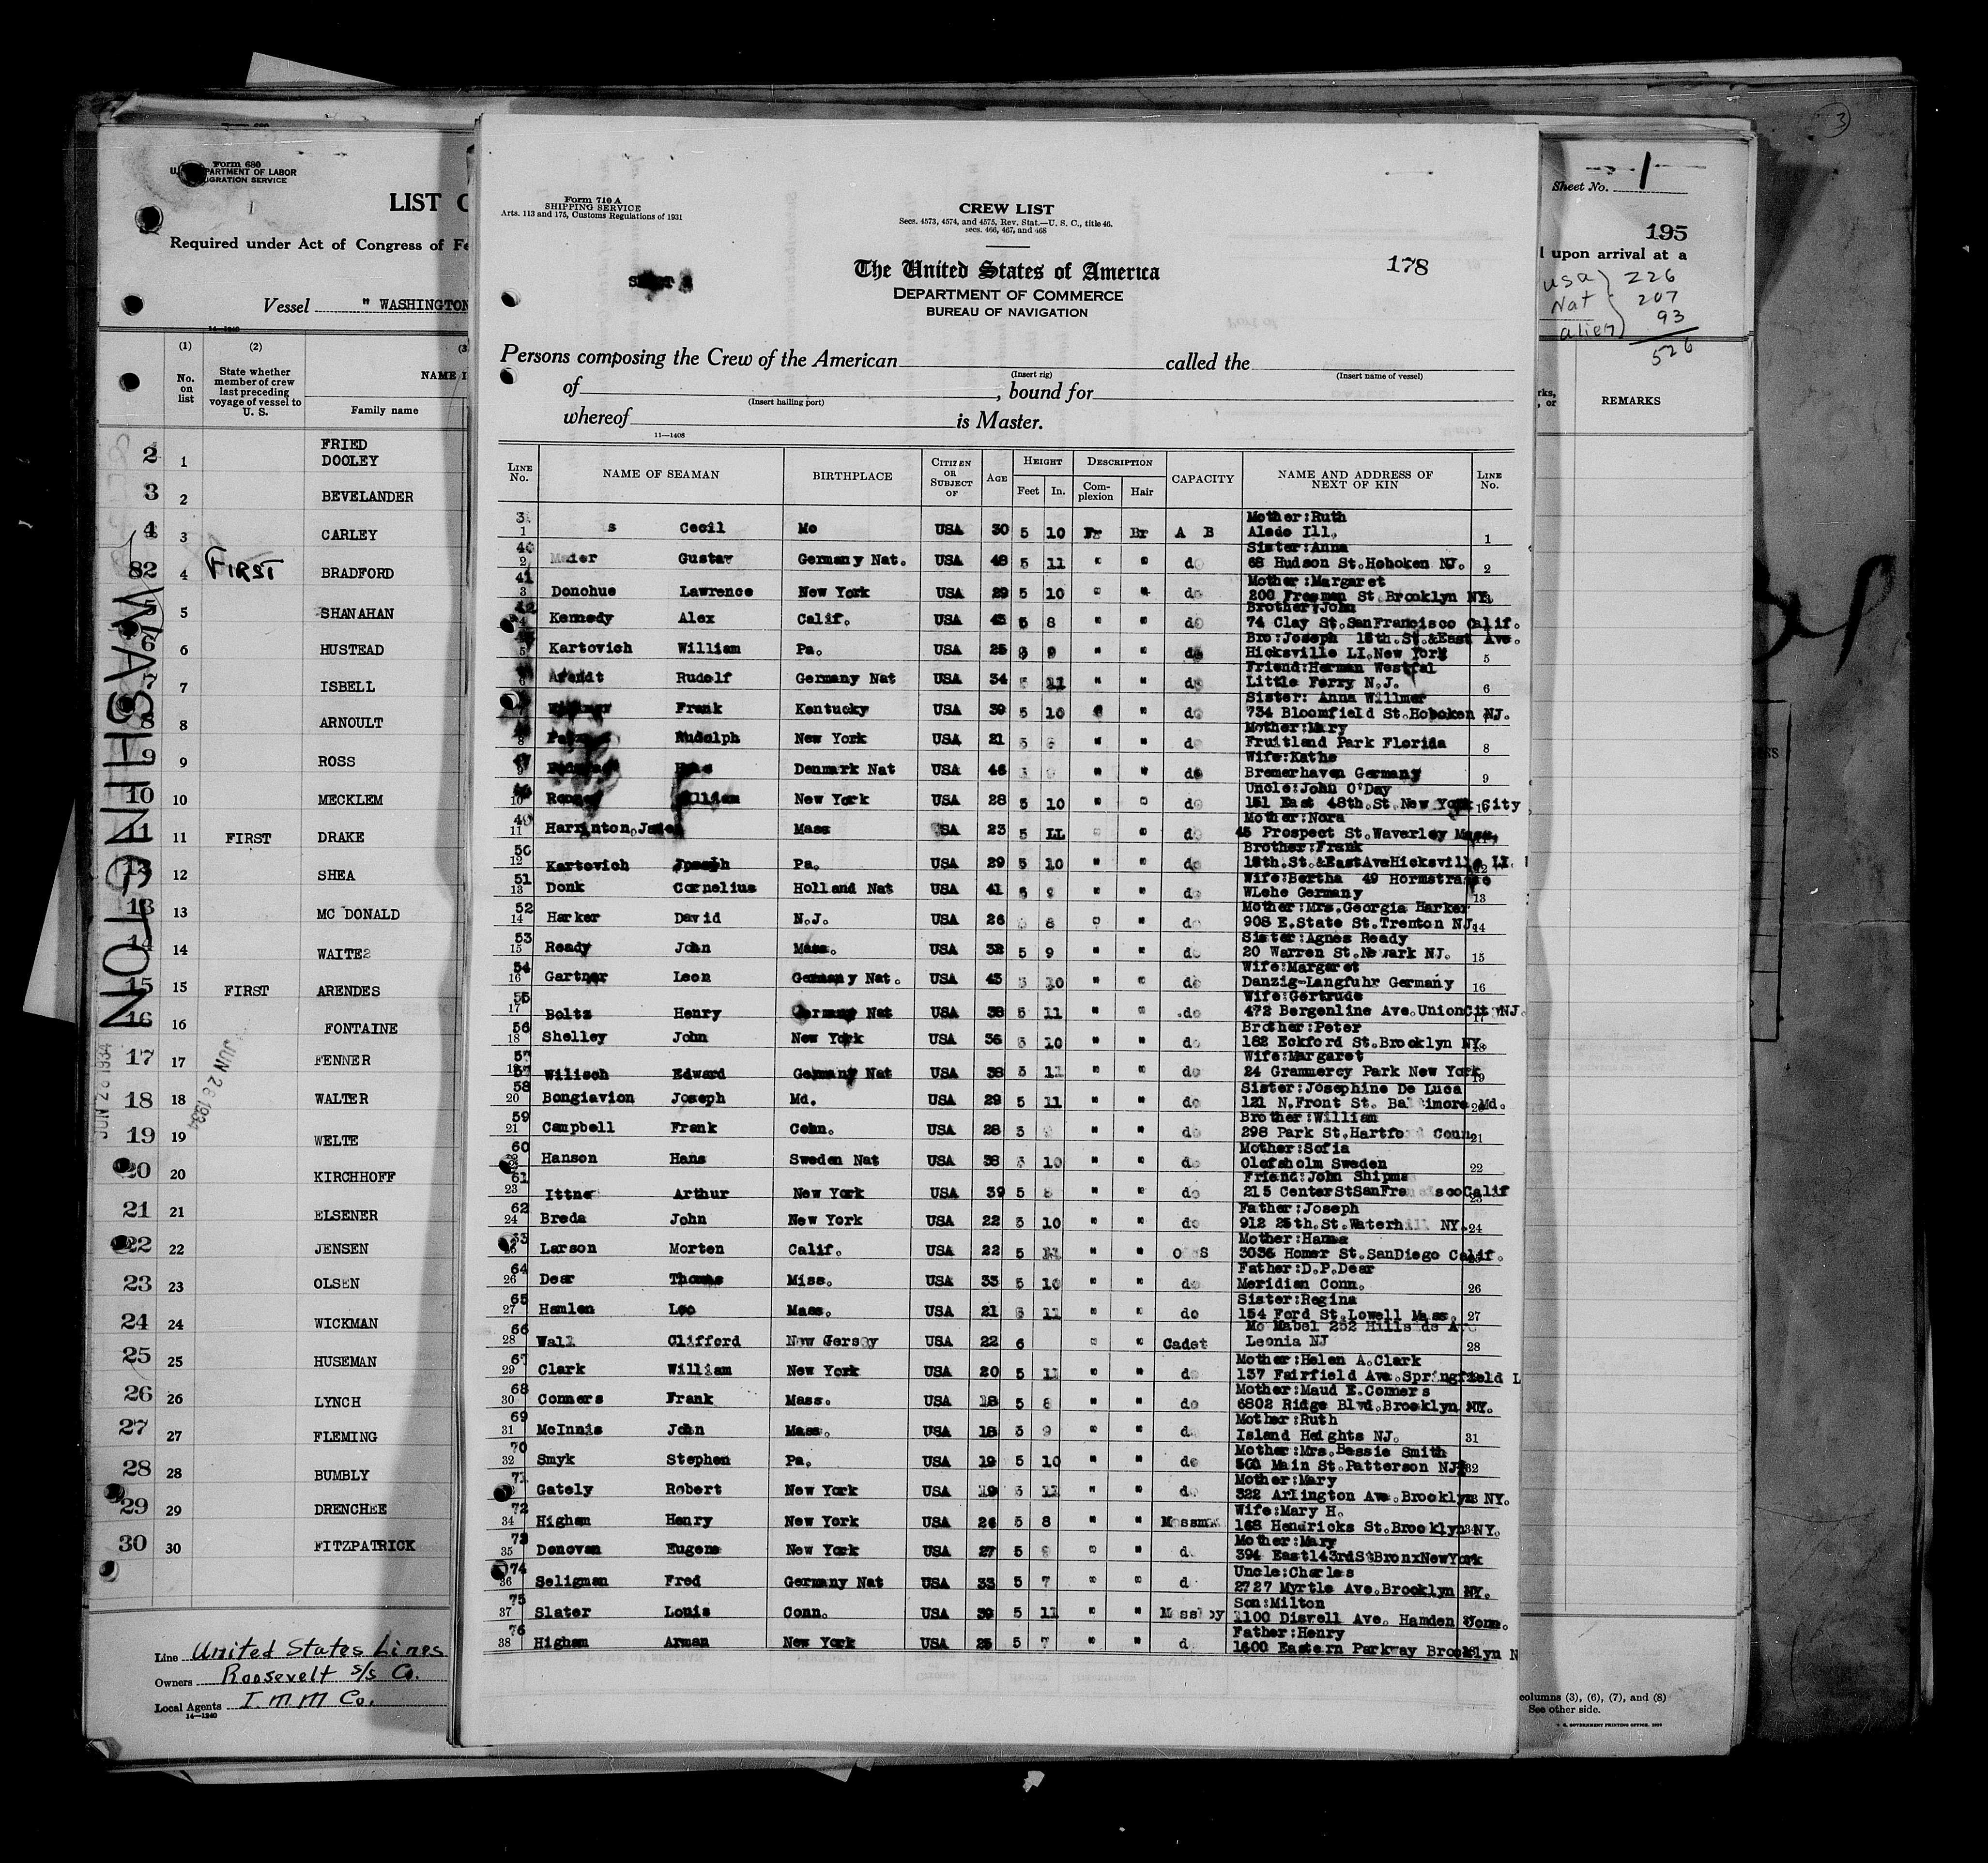 Form 680
U. DEPARTMENT OF LABOR
IMMIGRATION SERVICE
LIST
Required under Act of Congress of Fe
Vessel " WASHINGTON
14—1240
(1) (2) (3
No. on list
State whether member of crew last preceding voyage of vessel to U. S.
NAME I
Family name
FRIED
2 1 DOOLEY
3 2 BEVELANDER
4 3 CARLEY
82 4 FIRST BRADFORD
5 5 SHANAHAN
6 6 HUSTEAD
7 7 ISBELL
8 8 ARNOULT
9 9 ROSS
10 10 MECKLEM
11 11 FIRST DRAKE
12 SHEA
13 13 MC DONALD
14 14 WAITE
15 15 FIRST ARENDES
16 16 FONTAINE
17 17 FENNER
18 18 WALTER
19 19 WELTE
20 20 KIRCHHOFF
21 21 ELSENER
22 22 JENSEN
23 23 OLSEN
24 24 WICKMAN
25 25 HUSEMAN
26 26 LYNCH
27 27 FLEMING
28 28 BUMBLY
29 29 DRENCHEE
30 30 FITZPATRICK
WASHINGTON
JUN 28 1934
JUN 28 1934
Line United States Lines
Owners Roosevelt S/S Co.
Local Agents I.M.M Co.
14—1240
Form 710 A
SHIPPING SERVICE
Arts. 113 and 175, Customs Regulations of 1931
CREW LIST
Secs. 4573, 4574, and 4575, Rev. Stat.—U. S. C., title 46,
secs. 466, 467, and 468
178
The United States of America
DEPARTMENT OF COMMERCE
BUREAU OF NAVIGATION
Persons composing the Crew of the American called the
(Insert rig) (Insert name of vessel)
of , bound for
(Insert hailing port)
whereof is Master.
11—1408
LINE No. NAME OF SEAMAN BIRTHPLACE CITIZEN OR SUBJECT OF AGE HEIGHT DESCRIPTION CAPACITY NAME AND ADDRESS OF NEXT OF KIN LINE No.
Feet In. Complexion Hair
Mother:Ruth
1 Cecil Mo USA 30 5 10 Fr Br A B Aledo Ill. 1
40 Sister:Anna
2 Gustav Germany Nat. USA 48 5 11 " " do 68 Hudson St.Hoboken NJ. 2
41 Mother:Margaret
3 Donohue Lawrence New York USA 29 5 10 " " do 200 Freeman St Brooklyn NY
42 Brother:John
4 Kennedy Alex Calif. USA 43 5 8 " " do 74 Clay St.SanFrancisco Calif.
Bro:Joseph 18th.St.&East Ave.
5 Kartovich William Pa. USA 25 5 9 " " do Hicksville LI.New York 5
Friend:Herman Westfal
6 Arendt Rudolf Germany Nat USA 34 5 11 " " do Little Ferry N.J. 6
Sister: Anna Willmer
Frank Kentucky USA 39 5 10 " " do 734 Bloomfield St.Hoboken NJ.
Mother:Mary
8 Rudolph New York USA 21 5 " " do Fruitland Park Florida 8
Wife:Kathe
9 Denmark Nat USA 46 " " do Bremerhaven Germany 9
Uncle:John O'Day
10 William New York USA 28 5 10 " " do 151 East 48th.St.New York City
49 Mother:Nora
11 Harrinton,James Mass USA 23 5 11 " " do 45 Prospect St.Waverley Mass,
50 Brother:Frank
12 Kartovich Joseph Pa. USA 29 5 10 " " do 18th.St.&EastAveHicksville LI.
51 Wife:Bertha 49 Hormstrasse
13 Donk Cornelius Holland Nat USA 41 5 " " do WLehe Germany 13
52 Mother:Mrs.Georgia Harker
14 Harker David N.J. USA 26 8 " " do 908 E.State St.Trenton NJ. 14
53 Sister:Agnes Ready
15 Ready John Mass. USA 32 5 9 " " do 20 Warren St.Newark NJ. 15
54 Wife:Margaret
16 Gartner Leon Germany Nat. USA 43 5 10 " " do Danzig-Langfuhr Germany 16
55 Wife:Gertrude
17 Boltz Henry Germany Nat USA 38 5 11 " " do 472 Bergenline Ave.UnionCityNJ.
56 Brother:Peter
18 Shelley John New York USA 36 5 10 " " do 182 Eckford St.Brooklyn NY. 18
57 Wife:Margaret
57 Wilisch Edward Germany Nat USA 38 5 11 " " do 24 Grammercy Park New York 19
58 Sister:Josephine De Luca
20 Bongiavion Joseph Md. USA 29 5 11 " " do 121 N.Front St. Baltimore Md.
59 Brother:William
21 Campbell Frank Conn. USA 28 5 " " do 298 Park St.Hartford Conn 21
60 Mother:Sofia
Hanson Hans Sweden Nat USA 38 5 10 " " do Olofsholm Sweden 22
61 Friend:John Shipms
23 Ittner Arthur New York USA 39 5 8 " " do 215 CenterStSanFranciscoCalif
62 Father:Joseph
24 Breda John New York USA 22 5 10 " " do 912 25th.St.Waterhill NY. 24
Mother:Hanna
Larson Morten Calif. USA 22 5 11 " " O S 3036 Homer St.SanDiego Calif.
64 Father:D.P.Dear
26 Dear Thomas Miss. USA 33 5 10 " " do Meridian Conn. 26
65 Sister:Regina
27 Hamlen Leo Mass. USA 21 5 11 " " do 154 Ford St.Lowell Mass. 27
66 Mo Mabel 252 Hillside Ave
28 Wall Clifford New Gersey USA 22 6 " " Cadet Leonia NJ 28
67 Mother:Helen A.Clark
29 Clark William New York USA 20 5 11 " " do 137 Fairfield Ave.Springfield L
68 Mother:Maud E.Comers
30 Conners Frank Mass. USA 18 5 8 " " do 6802 Ridge Blvd.Brooklyn NY.
69 Mother:Ruth
31 McInnis John Mass. USA 18 5 9 " " do Island Heights NJ. 31
70 Mother:Mrs.Bessie Smith
32 Smyk Stephen Pa. USA 19 5 10 " " do Main St.Patterson NJ 32
71 Mother:Mary
Gately Robert New York USA 19 5 11 " " do 322 Arlington Ave.Brooklyn NY.
72 Wife:Mary H.
34 Higham Henry New York USA 26 5 8 " " Messman 168 Hendricks St.Brooklyn NY.
73 Mother:Mary
35 Donovan Eugene New York USA 27 5 " " do 394 East143rdStBronxNewYork
74 Uncle:Charles
36 Seligman Fred Germany Nat USA 33 5 7 " " d 2727 Myrtle Ave.Brooklyn NY.
75 Son:Milton
37 Slater Louis Conn. USA 39 5 11 " " Messboy 1100 Diswell Ave. Hamden Conn.
76 Father:Henry
38 Higham Arman New York USA 25 5 7 " " d 1600 Eastern Parkway Brooklyn N
3
Sheet No. 1
195
l upon arrival at a
usa 226
Nat 207
alien 93
526
rks,
, or
REMARKS
columns (3), (6), (7), and (8)
See other side.
U. S. GOVERNMENT PRINTING OFFICE.